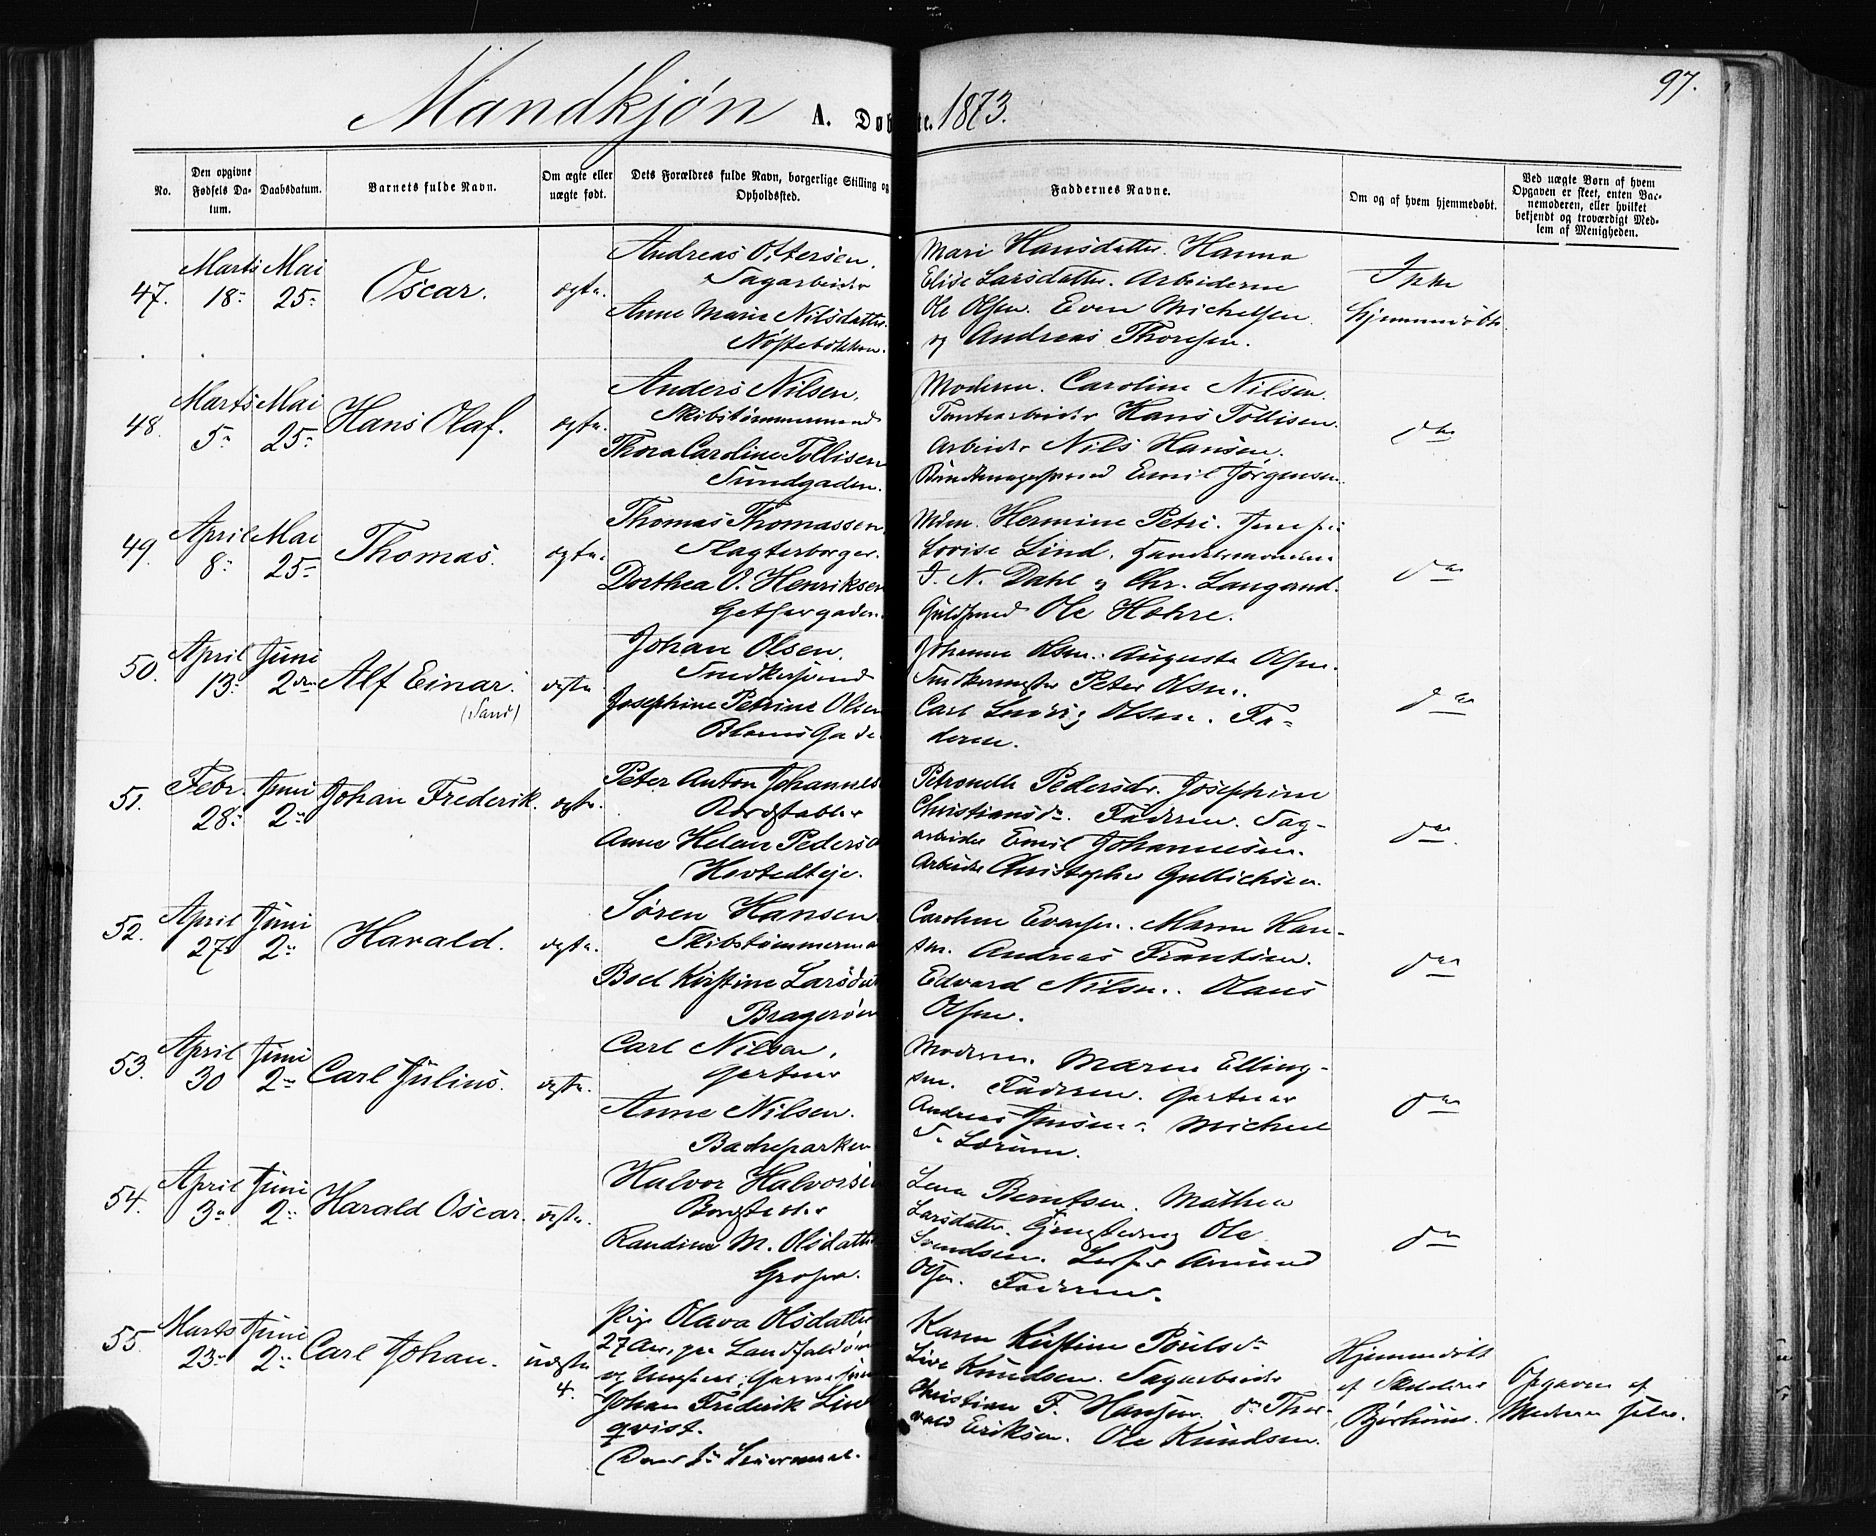 97.
Mandkjøn A. Døbte. 1873.
No.
Den opgivne Fødsels Datum.
Daabsdatum.
Barnets fulde Navn.
Om ægte eller uægte født.
Dets Forældres fulde Navn, borgerlige Stilling og Opholdssted.
Faddernes Navne.
Om og af hvem hjemmedøbt.
Ved uægte Børn af hvem Opgaven er skeet, enten Barnemoderen, eller hvilket bekjendt og troværdigt Medlem af Menigheden.
47.
Marts 18
Mai 25
Oscar.
ægte.
Andreas Ottersen.
Sagarbeider
Anne Marie Nilsdatter.
Mari Hansdatter. Hanna
Elise Larsdatter. Arbeiderne
Ole Olsen. Even Michelsen
og Andreas Thoresen.
Ikke
hjemmedøbt.
48.
Marts 5
Mai 25
Hans Olaf.
ægte.
Anders Nilsen.
Skibstømmermand
Thora Caroline Tollisen
Sundgaden.
Moderen. Caroline Nilsen.
Tomtearbeider Hans Tollisen.
Arbeider Nils Hansen.
Emil Jørgensen.
do
49.
April 8
Mai 25
Thomas.
ægte.
Thomas Thomassen
Slagterborger.
Dorthea O. Henriksen
Mdm. Hermine Petri. Jomfru
Lovise Lind. Handelsmændene
J. N. Dahl og Chr. Langaard.
Guldsmed Ole Høhre.
do
50.
April 13
Juni 2den
Alf Einar.
(Sand)
ægte
Johan Olsen.
Snedkersvend
Josephine Petrine Olsen
Blomsgade.
Johanne Olsen. Augusta Olsen.
Snedkermester Peter Olsen.
Carl Ludvig Olsen. Fa-
deren.
do
51.
Febr. 28
Juni 2
Johan Frederik.
ægte.
Peter Anton Johannes
Bordstabler
Anne Helene Pedersd
Hovtedteje.
Petronelle Pedersdr. Josephine
Christiansdr. Faderen. Sag-
arbeider Emil Johannesen.
Arbeider Christopher Gullichsen.
do.
52.
April 27
Juni 2
Harald.
ægte.
Søren Hansen
Skibstømmerma
Boel Kirstine Larsdat
Bragerøen
Caroline Evensen. Maren Han-
sen. Andreas Frantsen.
Edvard Nilsen. Olaus
Olsen.
do
53.
April 30
Juni 2
Carl Julius.
ægte.
Carl Nilsen.
Gartner
Anne Nilsen.
Bacheparken
Moderen. Maren Elling-
sen. Faderen. Gartner
Andreas Jensen. Michael
S. Lorum.
do
54.
April 3
Juni 2
Harald Oscar.
ægte.
Halvor Halvorsen
Bordstabler
Randine M. Olsdatter
Lena Berntsen. Mathea
Larsdatter. Ole
Svendsen. Amund
Olsen. Faderen.
do
55.
Marts 23
Juni 2
Carl Johan.
uægte
4.
Pige Olava Olsdatter
27 Aar, paa Landfaldøen
og Ungkarl
Johan Frederik Lind
qvist.
Karen Kirstine Poulsdr
Live Knudsen. Sagarbeider
Christian F. Hansen. do Thor-
vald Eriksen. Ole Knudsen.
Hjemmedøbt
af
Opgaven af
Moderen selv.